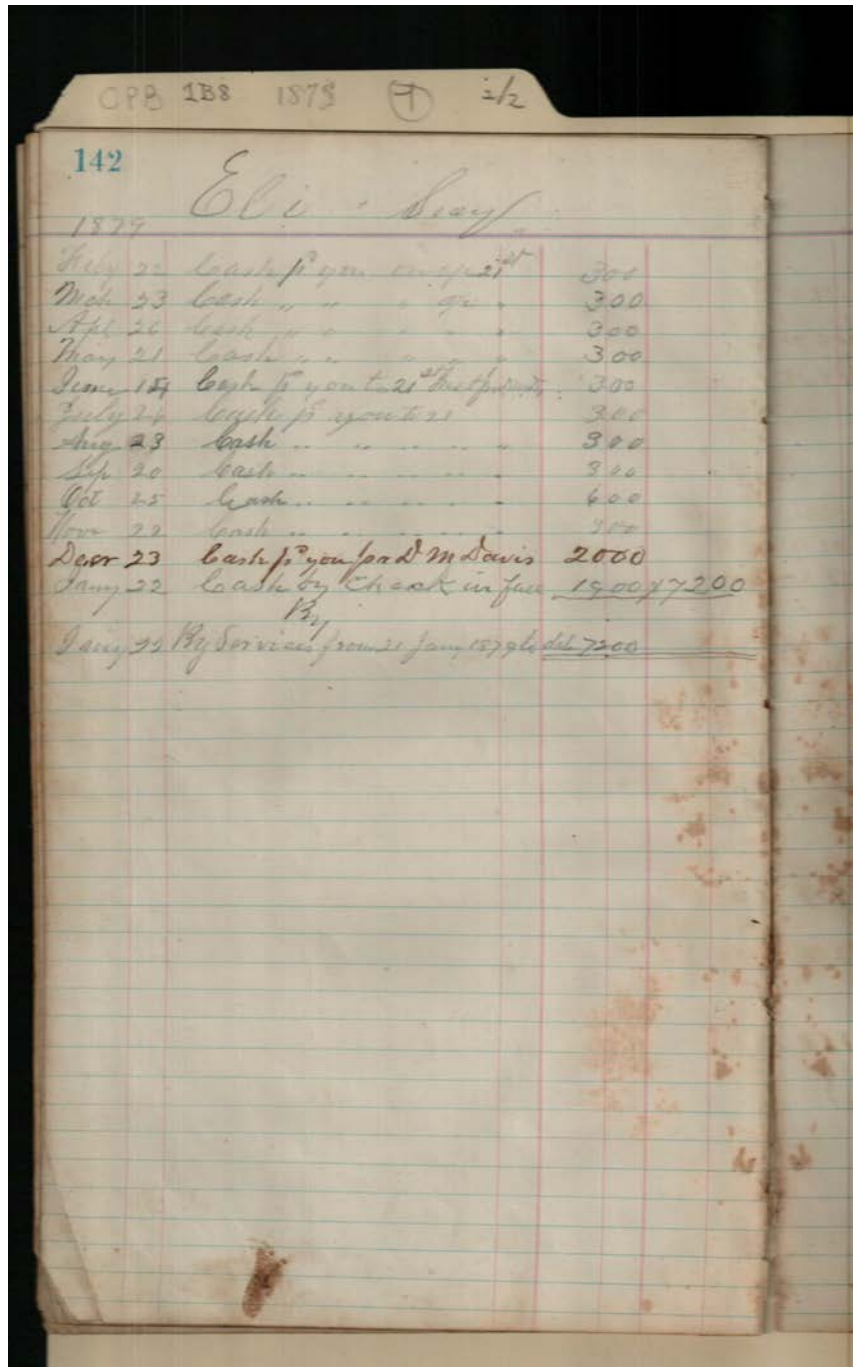 OPB 1B8 1879 7 2/2
142
Eli Seay
1879
Feby 22 Cash pd you 21st 300
Mch 23 Cash " " " " 300
Apl 26 Cash " " " " " 300
May 21 Cash " " " " " 300
June 15 Cash pd you to 21st 300
July 26 Cash pd you to 21 300
Aug 23 Cash " " " " " 300
Sep 20 Cash " " " " " 300
Oct 25 Cash " " " " " 600
Novr 22 Cash " " " " "
Decr 23 Cash pd you pr D M Davis 2000
Jany 22 Cash by Check in full 1900 7200
By
Jany 22 By Services from 21 Jany 1879 to date 7200